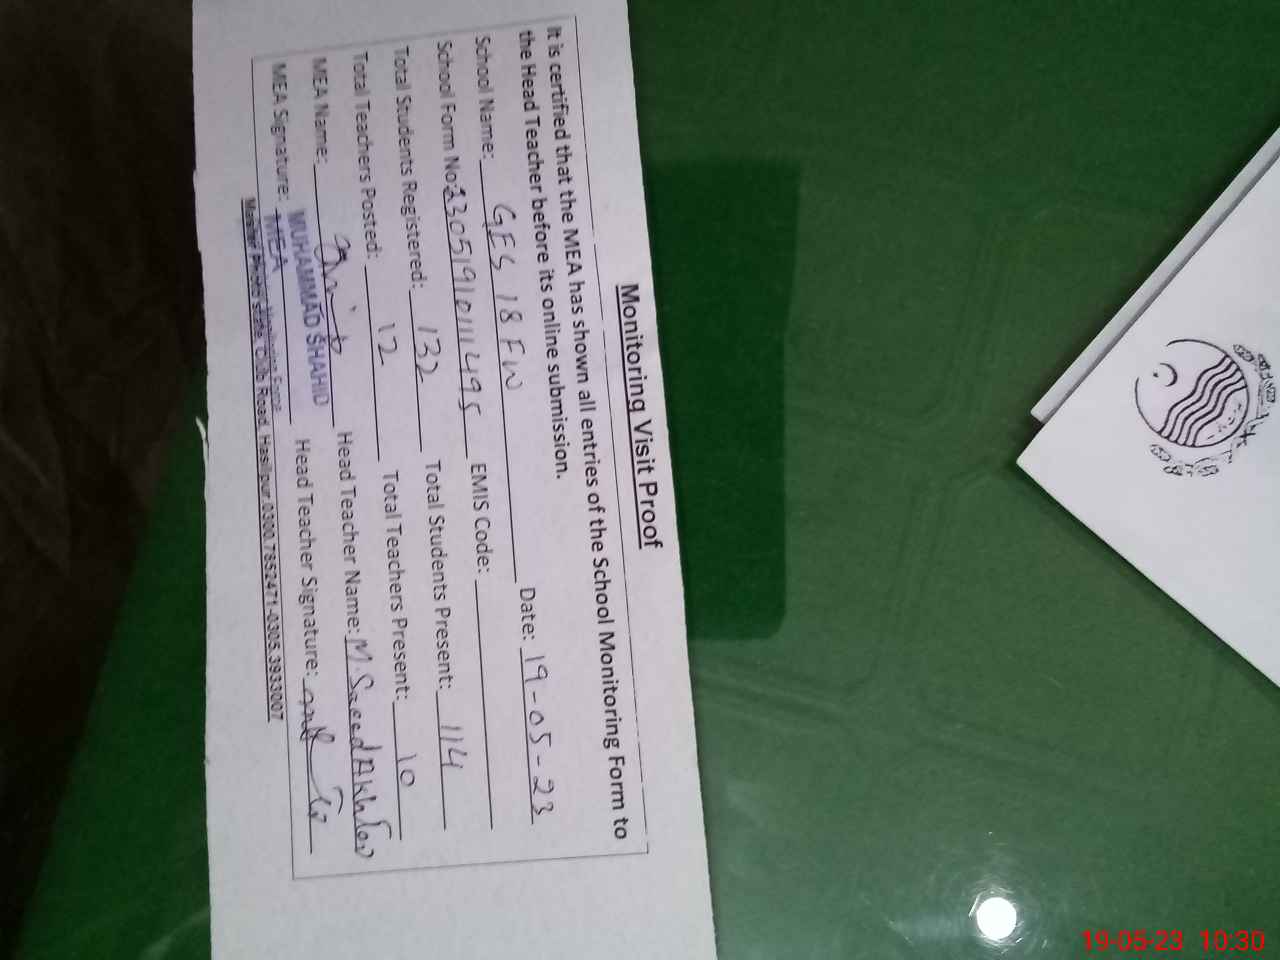 Monitoring Visit Proof
It is certified that the MEA has shown all entries of the School Monitoring Form to
the Head Teacher before its online submission.
School Name: GES 18 FW Date: 19-05-23
School Form No: 2305191011495 EMIS Code:
Total Students Registered: 132 Total Students Present: 114
Total Teachers Posted: 12 Total Teachers Present: 10
MEA Name: Head Teacher Name: M. Saeed Akhtar
MEA Signature: Head Teacher Signature:
MUHAMMAD SHAHID
MEA
Master Photo State, Club Road, Hasilpur 0300.7852471-0305.3933007
19-05-23 10:30